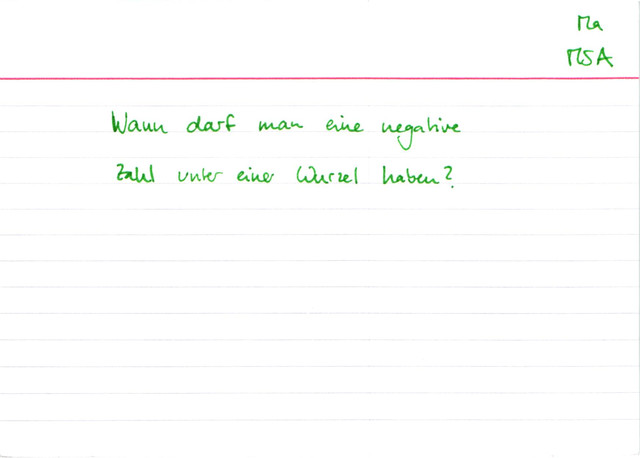 Ma
MSA
Wann darf man eine negative
Zahl unter einer Wurzel haben?